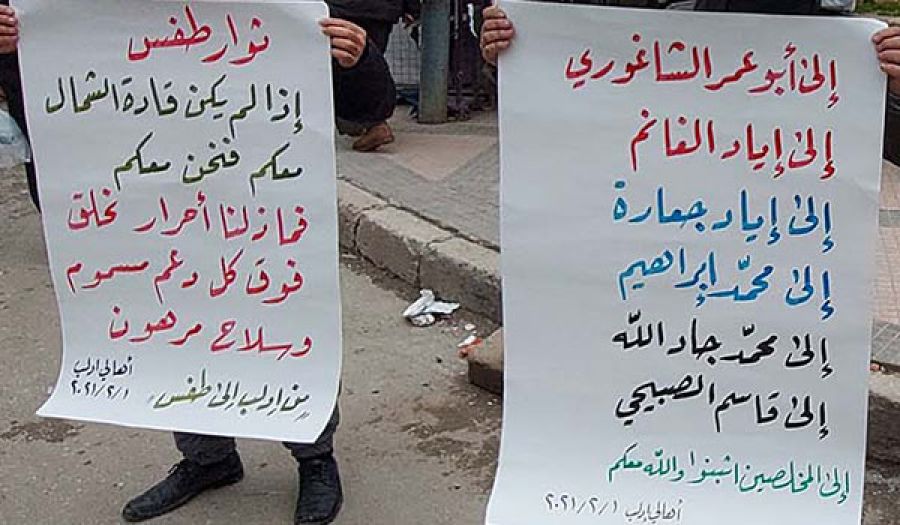 إلى أبو عمر الشاغوري
إلى إياد الغانم
إلى إياد جعارة
إلى محمّد إبراهيم
إلى محمّد جاد الله
إلى قاسم الصبيحي
إلى المخلصين اثبتوا والله معكم
أهالي إدلب ٢٠٢١/٢/١
ثوار طفس
إذا لم يكن قادة الشمال
معكم فنحن معكم
فمازلنا أحرار نحلق
فوق كل دعم مسموم
وسلاح مرهون
من إدلب إلى طفس
أهالي إدلب
٢٠٢١/٢/١